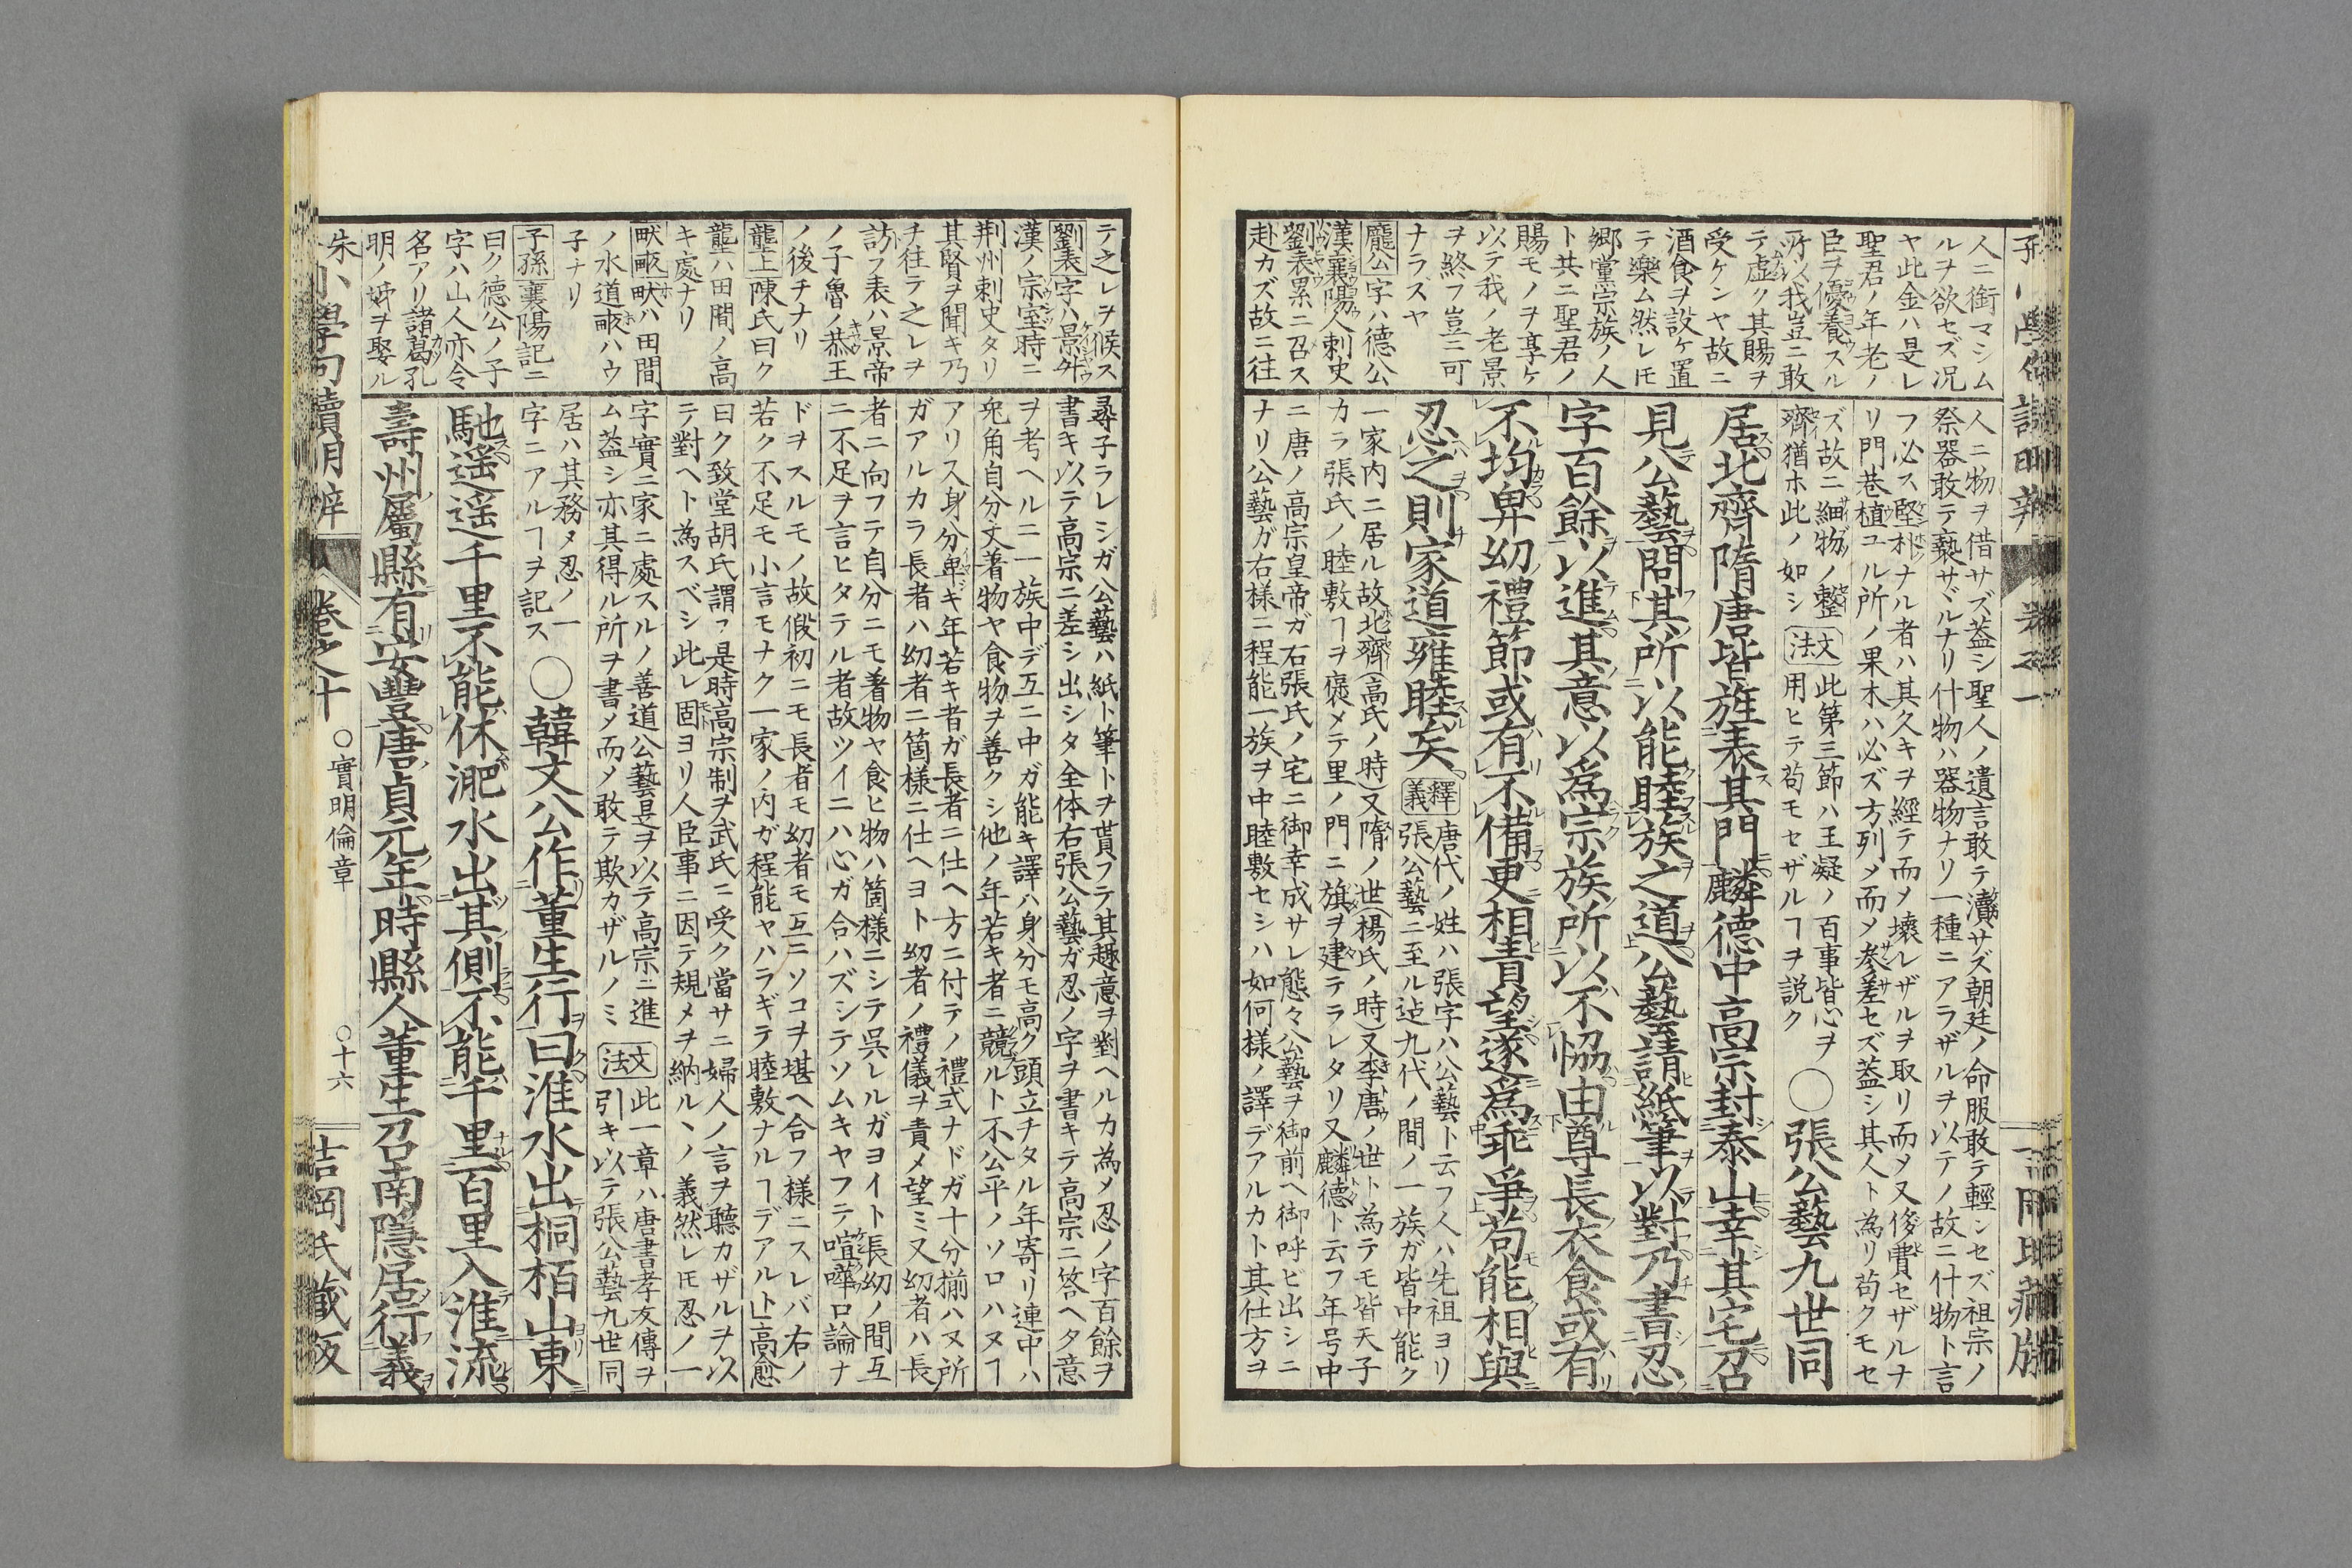 人ニ銜マシム
ルヲ欲セズ况
ヤ此金ハ是レ
聖君ノ年老ノ
臣ヲ優養スル
所以我豈ニ敢
テ虚ク其賜ヲ
受ケンヤ故ニ
酒食ヲ設ケ置
テ樂ム然レ𪜈
郷黨宗族ノ人
ト共ニ聖君ノ
賜モノヲ享ケ
以テ我ノ老景
ヲ終フ豈ニ可
ナラズヤ
龐公字ハ德公
漢襄陽人刺史
劉表累ニ召ス
赴カズ故ニ往
人ニ物ヲ借サズ葢シ聖人ノ遺言敢テ瀆サズ朝廷ノ命服敢テ輕ンセズ祖宗ノ
祭器敢テ褻サヾルナリ什物ハ器物ナリ一種ニアラザルヲ以テノ故ニ什物ト言
フ必ス堅朴ナル者ハ其久キヲ經テ而メ壊レザルヲ取リ而メ又侈費セザルナ
リ門巷植ユル所ノ果木ハ必ズ方列メ而メ参差セズ葢シ其人ト為リ苟クモセ
ズ故ニ細物ノ整
齊猶ホ此ノ如シ
文法
此第三節ハ王凝ノ百事皆心ヲ
用ヒテ苟モセザルヿヲ説ク
〇張公藝九世同
居北齊隋唐皆旌表其門麟德中高宗封泰山幸其宅召
見公藝問其所以能睦族之道公藝請紙筆以對乃書忍
字百餘以進其意以爲宗族所以不恊由尊長衣食或有
不均卑幼禮節或有不備更相責望遂爲乖爭苟能相與
忍之則家道雍睦矣
釋義
唐代ノ姓ハ張字ハ公藝ト云フ人ハ先祖ヨリ
張公藝ニ至ル迠九代ノ間ノ一族ガ皆中能ク
一家内ニ居ル故北齊(高氏ノ時)又隋ノ世(楊氏ノ時)又李唐ノ世ト為テモ皆天子
カラ張氏ノ睦敷ヿヲ褒メテ里ノ門ニ旗ヲ建テラレタリ又麟德ト云フ年号中
ニ唐ノ高宗皇帝ガ右張氏ノ宅ニ御幸成サレ態々公藝ヲ御前ヘ御呼ビ出シニ
ナリ公藝ガ右樣ニ程能一族ヲ中睦敷セシハ如何樣ノ譯デアルカト其仕方ヲ
テ之レヲ候ス
劉表字ハ景外
漢ノ宗室時ニ
荆州刺史タリ
其賢ヲ聞キ乃
チ往テ之レヲ
訪フ表ハ景帝
ノ子魯ノ恭王
ノ後チナリ
壟上陳氏曰ク
壟ハ田間ノ高
キ處ナリ
畎畝畎ハ田間
ノ水道畝ハウ
子ナリ
子孫襄陽記ニ
曰ク德公ノ子
字ハ山人亦令
名アリ諸葛孔
明ノ姊ヲ娶ル
尋子ラレシガ公藝ハ紙ト筆トヲ貰フテ其趣意ヲ對ヘルカ為メ忍ノ字百餘ヲ
書キ以テ高宗ニ差シ出シタ全体右張公藝ガ忍ノ字ヲ書キテ高宗ニ答ヘタ意
ヲ考ヘルニ一族中デ互ニ中ガ能キ譯ハ身分モ高ク頭立チタル年寄リ連中ハ
兎角自分丈着物ヤ食物ヲ善クシ他ノ年若キ者ニ競ルト不公平ノソロハヌヿ
アリス身分卑キ年若キ者ガ長者ニ仕ヘ方ニ付テノ禮式ナドガ十分揃ハヌ所
ガアルカラ長者ハ幼者ニ箇樣ニ仕ヘヨト幼者ノ禮儀ヲ責メ望ミ又幼者ハ長
者ニ向フテ自分ニモ着物ヤ食ヒ物ハ箇樣ニシテ呉レルガヨイト長幼ノ間互
ニ不足ヲ言ヒタテル者故ツイニハ心ガ合ハズシテソムキヤフテ喧嘩口論ナ
ドヲスルモノ故假初ニモ長者モ幼者モ互ニソコヲ堪ヘ合フ樣ニスレバ右ノ
若ク不足モ小言モナク一家ノ内ガ程能ヤハラギテ睦敷ナルヿデアルト」高愈
曰ク致堂胡氏謂フ是時高宗制ヲ武氏ニ受ク當サニ婦人ノ言ヲ聽カザルヲ以
テ對ヘト為スベシ此レ固ヨリ人臣事ニ因テ規メヲ納ル丶ノ義然レ𪜈忍ノ一
字實ニ家ニ處スルノ善道公藝是ヲ以テ高宗ニ進
ム葢シ亦其得ル所ヲ書メ而メ敢テ欺カザルノミ
文法
此一章ハ唐書孝友傳ヲ
引キ以テ張公藝九世同
居ハ其務メ忍ノ一
字ニアルヿヲ記ス
〇韓文公作董生行曰淮水出桐栢山東
馳遥遥千里不能休淝水出其側不能千里百里入淮流
壽州屬縣有安豐唐貞元年時縣人董生召南隱居行義
朱小學句讀明辨 卷之十 〇實明倫章 〇十六 吉岡氏藏版